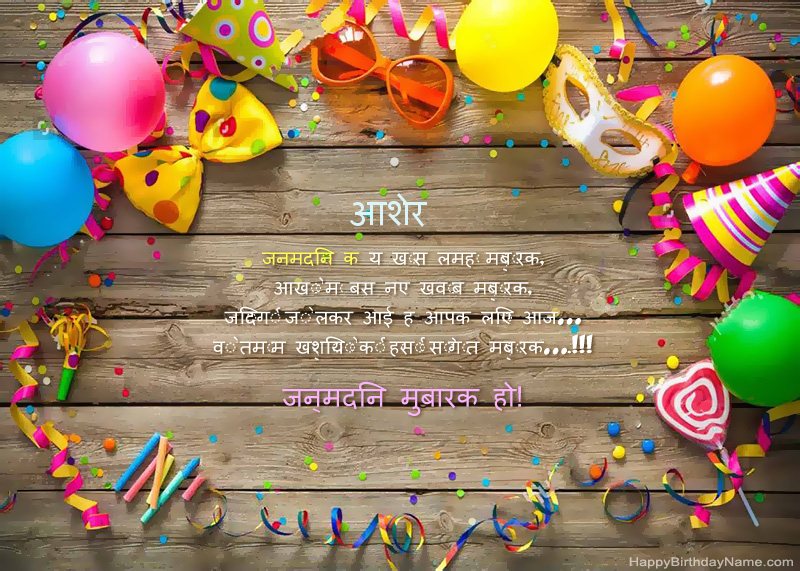 आशेर
जनमदिन क य खास लमह मबारक,
आखों म बस नए खवाब मबारक,
जिंदगी जो लेकर आई ह आपक लिए आज...
वो तमाम खुशियों की हसीं सौगात मबारक....!!!
जन्मदिन मुबारक हो!
HappyBirthdayName.com